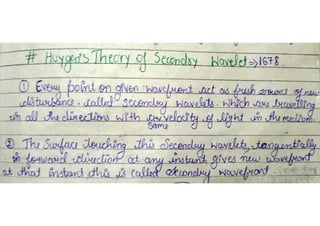 # Huygen's Theory of Secondry Wavelet ⇒ 1678.
① Every point on given wavefront act as fresh source of new
disturbance, called secondry wavelets. which are travelling
in all the directions with velocity of light in the medium.
same
② The Surface touching this Secondry wavelets, tangentially
in forward direction at any instant gives new wavefront
at that instant this is called secondry wavefront.